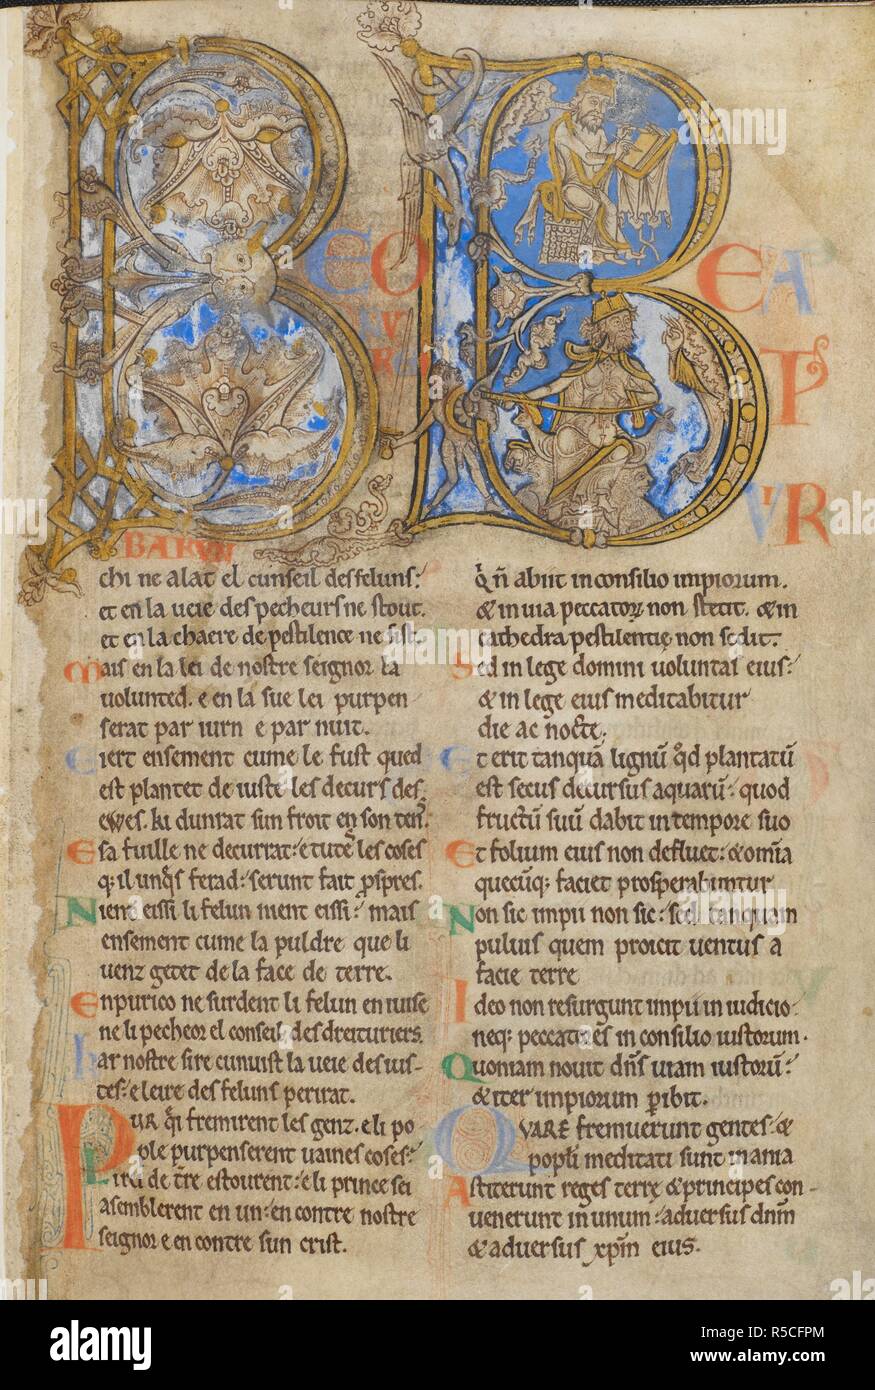 B
EO
V
R
BARUN
chi ne alat el cunseil des feluns:
et en la ueie des pecheurs ne stout.
et en la chaere de pestilence ne sist.
Mais en la lei de nostre seignor la
uolunted. e en la sue lei purpen
serat par iurn e par nuit.
E iert ensement cume le fust qued
est plantet de iuste les decurs des
ewes. ki dunrat sun froit en son tens.
E sa fuille ne decurrat: e tutes les coses
q: il unq̄s ferad: serunt fait p̄spres.
Nient eissi li felun nient eissi: mais
ensement cume la puldre que li
uenz getet de la face de terre.
Enpurico ne surdent li felun en iuise
ne li pecheor el conseil des dreituriers.
har nostre sire cunuist la ueie des ius-
tes: e leire des feluns perirat.
PUR q̄i fremirent les genz. e li po
ple purpenserent uaines coses:
Li rei de t̄re esturent: e li prince sei
asemblerent en un: en contre nostre
seignor e en contre sun crist.
B
EA
T
VR
q̄ n̄ abiit in consilio impiorum.
& in uia peccatoꝝ non stetit. & in
cathedra pestilentię non sedit.
Sed in lege domini uoluntas eius:
& in lege eius meditabitur
die ac nocte.
Et erit tanquā lignū q̄d plantatū
est secus decursus aquarū: quod
fructū suū dabit in tempore suo
Et folium eius non defluet: & om̄ia
quecūq: faciet prosperabuntur
Non sic impii non sic: sed tanquam
puluis quem proicit uentus a
facie terre
Ideo non resurgunt impii in iudicio:
neq: peccatores in consilio iustorum.
Quoniam nouit dn̄s uiam iustorū:
& iter impiorum p̄ibit.
QVARE fremuerunt gentes: &
popl̄i meditati sunt inania
Astiterunt reges terrę & principes con-
uenerunt in unum: aduersus dn̄m
& aduersus xp̄m eius.
alamy
alamy
Image ID: R5CFPM
www.alamy.com